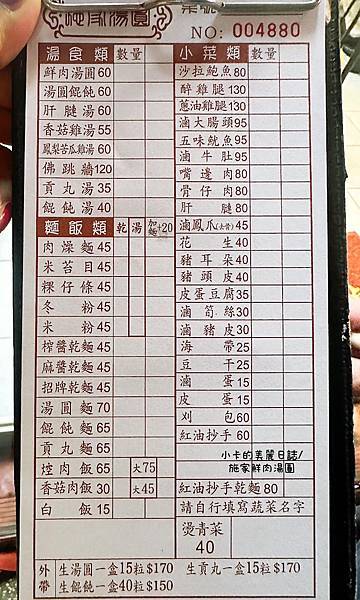 施家湯圓
NO: 004880
湯食類 數量
鮮肉湯圓 60
湯圓餛飩 60
肝腱湯 60
香菇雞湯 55
鳳梨苦瓜雞湯 60
佛跳牆 120
貢丸湯 35
餛飩湯 40
麵飯類 乾 湯 加麵+20
肉燥麵 45
米苔目 45
粿仔條 45
冬粉 45
米粉 45
榨醬乾麵 45
麻醬乾麵 45
招牌乾麵 45
湯圓麵 70
餛飩麵 65
貢丸麵 65
焢肉飯 65 大75
香菇肉飯 30 大45
白飯 15
小菜類 數量
沙拉鮑魚 80
醉雞腿 130
蔥油雞腿 130
滷大腸頭 95
五味魷魚 95
滷牛肚 95
嘴邊肉 80
骨仔肉 80
肝腱 80
滷鳳爪(去骨) 45
花生 40
豬耳朵 40
豬頭皮 40
皮蛋豆腐 35
滷筍絲 30
滷豬皮 30
海帶 25
豆干 25
滷蛋 15
皮蛋 15
刈包 60
紅油抄手 60
小卡的美麗日誌/
施家鮮肉湯圓
紅油抄手乾麵 80
請自行填寫蔬菜名字
燙青菜
40
外帶
生湯圓一盒15粒$170 生貢丸一盒15粒$170
生餛飩一盒40粒$150